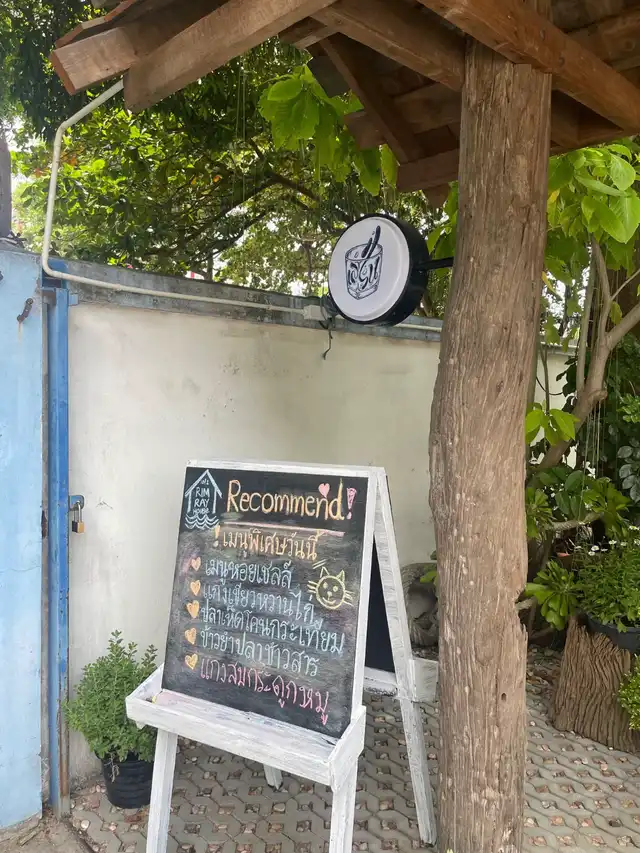 RIM
RAY
HOUSE
Recommend!
! เมนูพิเศษวันนี้
เมนูหอยเชลล์
แกงเขียวหวานไก่
ปลาเห็ดโคนกระเทียม
ข้าวยำปลาข้าวสาร
แกงส้มกระดูกหมู